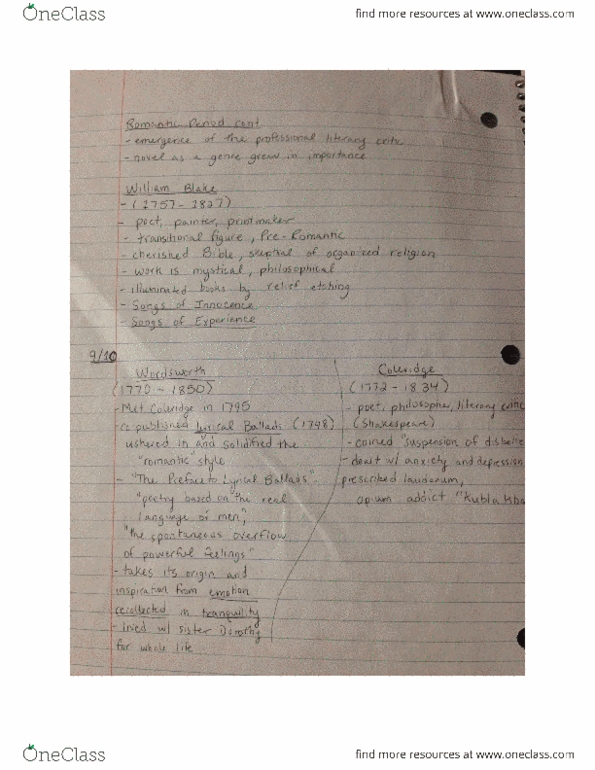 OneClass
find more resources at www.oneclass.com
Romantic Period cont
- emergence of the professional literary critic
- novel as a genre grew in importance
William Blake
- (1757-1827)
- poet, painter, printmaker
- transitional figure, Pre-Romantic
- cherished Bible, skeptial of organized religion
- work is mystical, philosophical
- illuminated books by relief etching
- Songs of Innocence
- Songs of Experience
9/10
Wordsworth
(1770 - 1850)
- Met Coleridge in 1795
co published Lyrical Ballads (1798)
ushered in and solidified the
"romantic" style
- "The Preface to Lyrical Ballads"-
"poetry based on "the real
language of men",
"the spontaneous overflow
of powerful feelings"
- takes its origin and
inspiration from emotion
recollected in tranquility
- lived w/ sister Dorothy
for whole life
Coleridge
(1772 - 1834)
- poet, philosopher, literary critic
(Shakespeare)
- coined "suspension of disbelie
- dealt w/ anxiety and depression
prescribed laudanum,
opium addict "Kubla Kha
OneClass
find more resources at www.oneclass.com